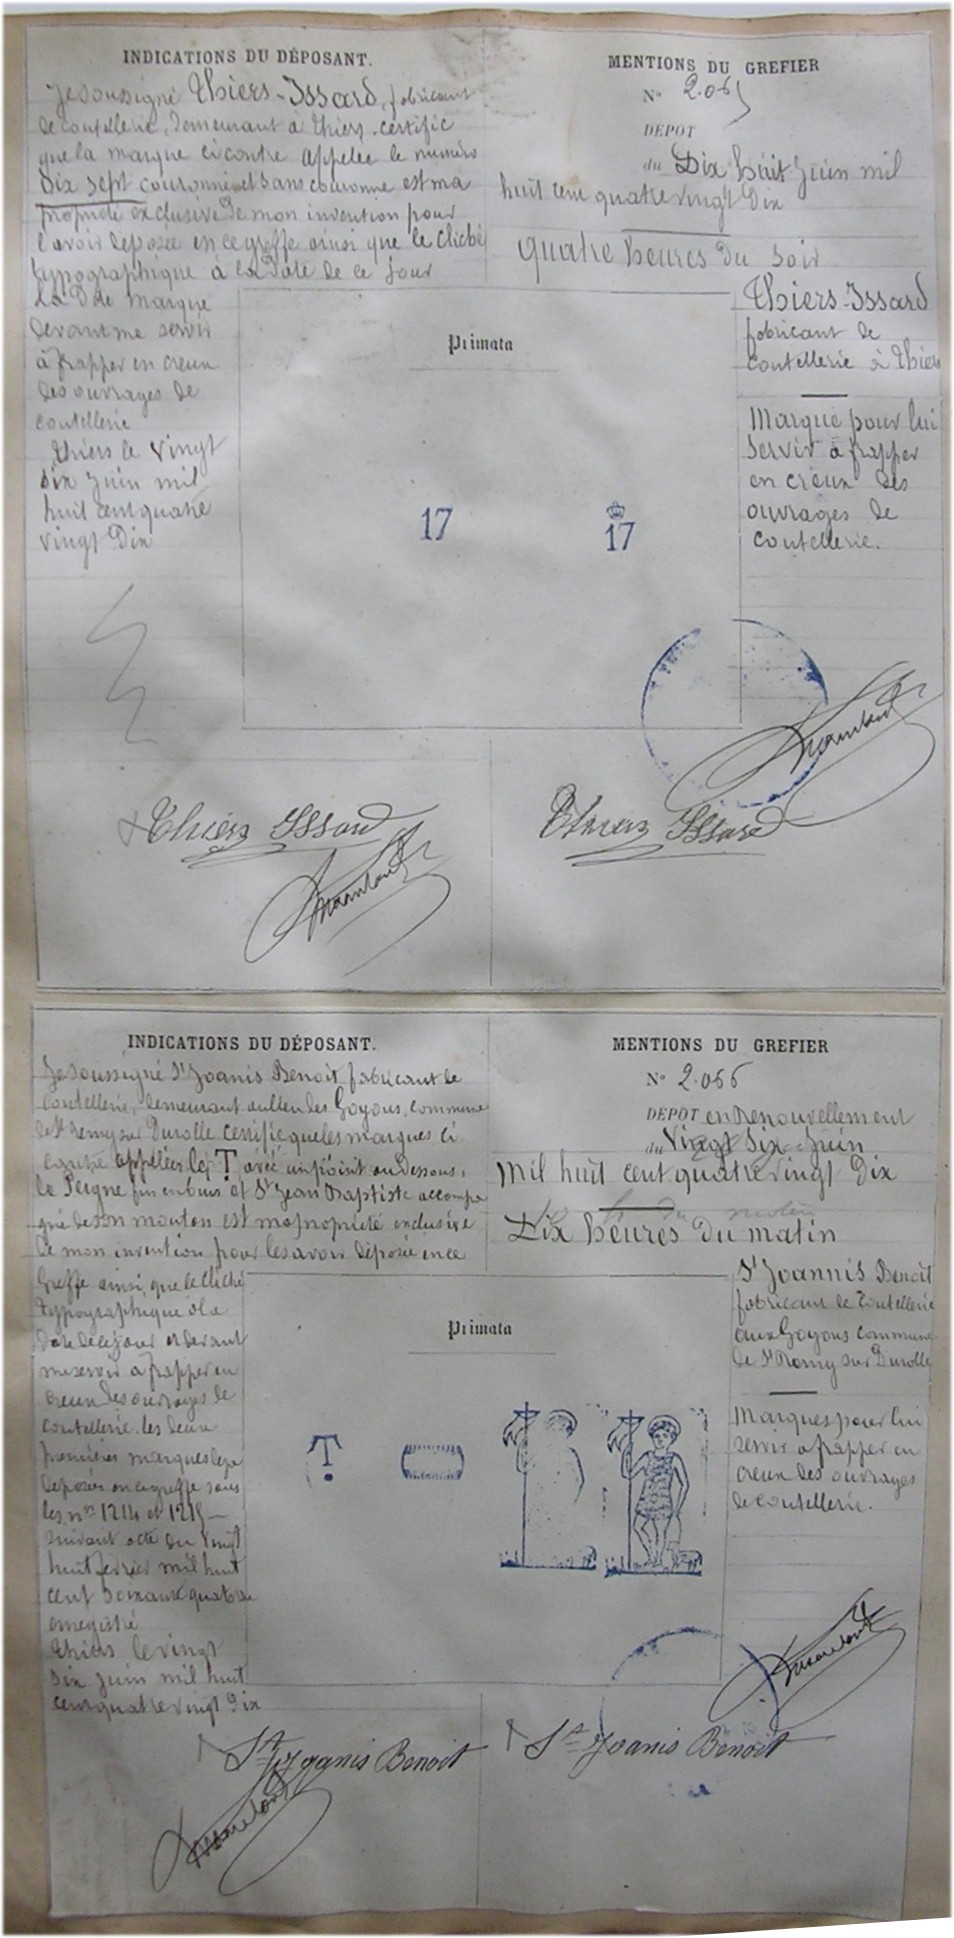 INDICATIONS DU DÉPOSANT.
Je soussigné Thiers-Issard, fabricant
de coutellerie, demeurant à Thiers certifie
que la marque ci contre appelée le numéro
dix sept couronné et sans couronne est ma
propriété exclusive de mon invention pour
l'avoir déposée en ce greffe ainsi que le cliché
typographique à la date de ce jour
La dite marque
devant me servir
à frapper en creux
des ouvrages de
coutellerie
Thiers le vingt
six juin mil
huit cent quatre
vingt dix
MENTIONS DU GREFIER
N° 2.065
DEPOT
du Dix huit juin mil
huit cent quatre vingt dix
quatre heures du soir
Thiers-Issard
fabricant de
coutellerie à Thiers
Marque pour lui
servir à frapper
en creux des
ouvrages de
coutellerie.
Primata
17 17
Thiers Issard
Thiers Issard
INDICATIONS DU DÉPOSANT.
Je soussigné St Joanis Benoit fabricant de
coutellerie, demeurant au lieu des Goyons, commune
de St Remy sur Durolle certifie que les marques ci
contre appellées le T avec un point au dessous,
le Peigne fin en buis et St Jean Baptiste accompa
gné de son mouton est ma propriété exclusive
de mon invention pour les avoir déposée en ce
Greffe ainsi que le cliché
typographique à la
date de ce jour et devant
me servir à frapper en
creux des ouvrages de
coutellerie. les deux
premières marques
déposées en ce greffe sous
les nos 1214 et 1215
suivant acte du vingt
huit février mil huit
cent soixante quatorze
enregistré
Thiers le vingt
six juin mil huit
cent quatre vingt dix
MENTIONS DU GREFIER
N° 2.066
DEPOT en Renouvellement
du Vingt Six Juin
Mil huit cent quatre vingt Dix
Dix heures du matin
St Joannis Benoit
fabricant de Coutellerie
aux Goyons commune
de St Remy sur Durolle
Marques pour lui
servir à frapper en
creux des ouvrages
de coutellerie.
Primata
T
St Joanis Benoit
St Joanis Benoit